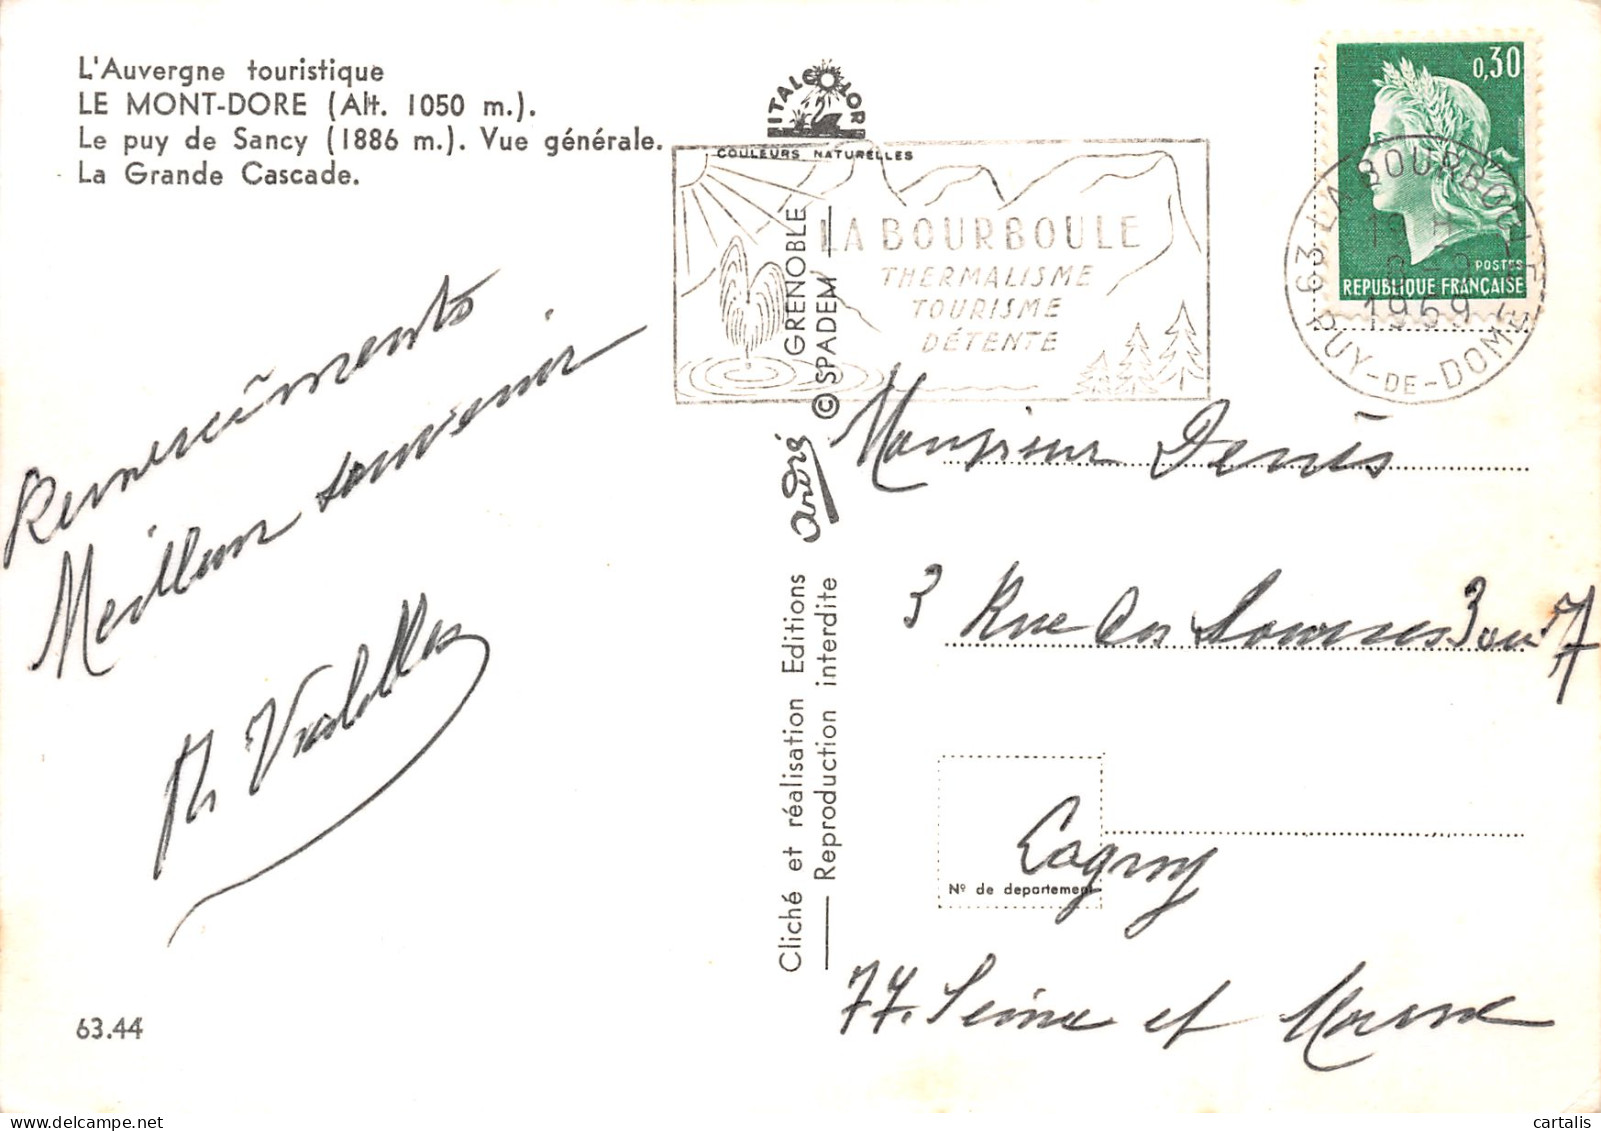 L'Auvergne touristique
LE MONT-DORE (Alt. 1050 m.).
Le puy de Sancy (1886 m.). Vue générale.
La Grande Cascade.
ITALCOLOR
COULEURS NATURELLES
LA BOURBOULE
THERMALISME
TOURISME
DÉTENTE
0,30
POSTES
REPUBLIQUE FRANÇAISE
63 LA BOURBOULE
19 H
8-9
1969
PUY-DE-DOME
Remerciements
Meilleur souvenir
Cliché et réalisation Editions andré GRENOBLE
Reproduction interdite © SPADEM
Monsieur Denis
3 Rue des 3 ou 7
Lagny
Nº de departement
77. Seine et Marne
63.44
cartalis